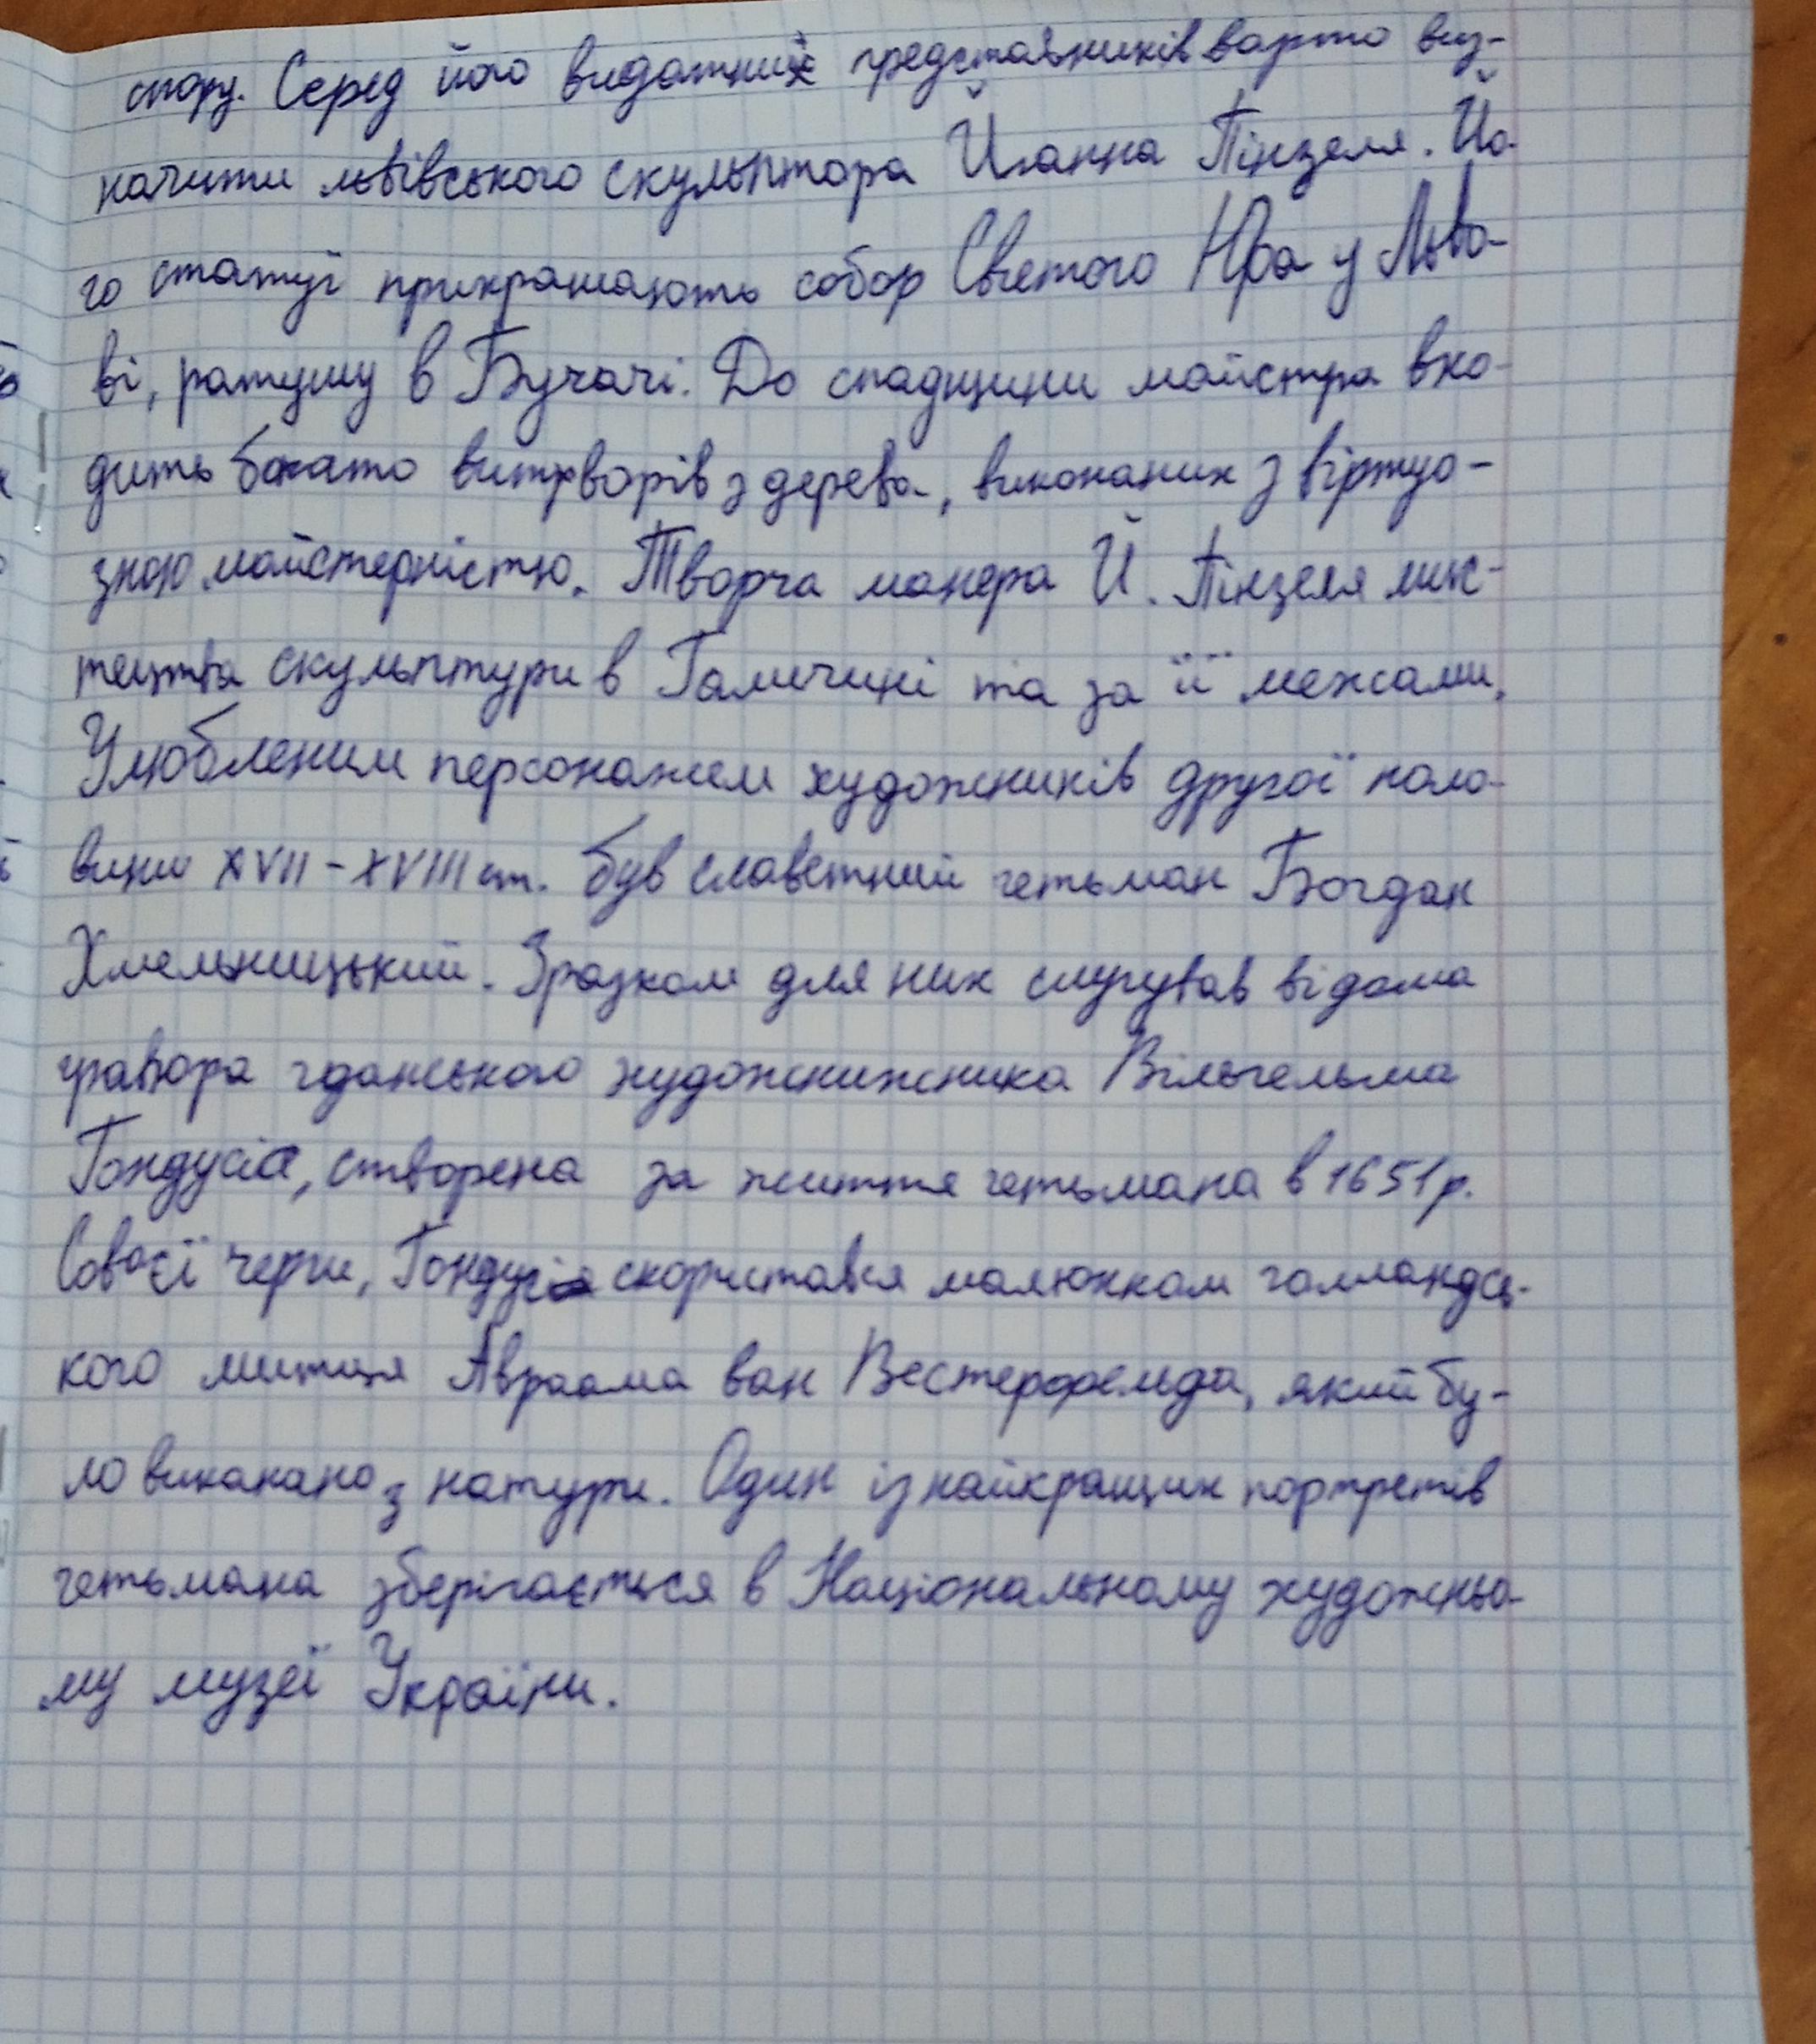 спору. Серед його видатних представників варто виз-
начити львівського скульптора Йоганна Пінзеля. Йо-
го статуї прикрашають собор Святого Юра у Льво-
ві, ратушу в Бучачі. До спадщини майстра вхо-
дить багато витворів з дерева, виконаних з віртуо-
зною майстерністю. Творча манера Й. Пінзеля мис-
тецтва скульптури в Галичині та за її межами.
Улюбленим персонажем художників другої поло-
вини XVII-XVIII ст. був славетний гетьман Богдан
Хмельницький. Зразком для них слугував відома
гравюра гданського художнижника Вільгельма
Гондусіа, створена за життя гетьмана в 1651р.
Своєї черги, скористався малюнком голландсь-
кого митця Авраама ван Вестерфельда, який бу-
ло виконано з натури. Один із найкращих портретів
гетьмана зберігається в Національному художньо-
му музеї України.